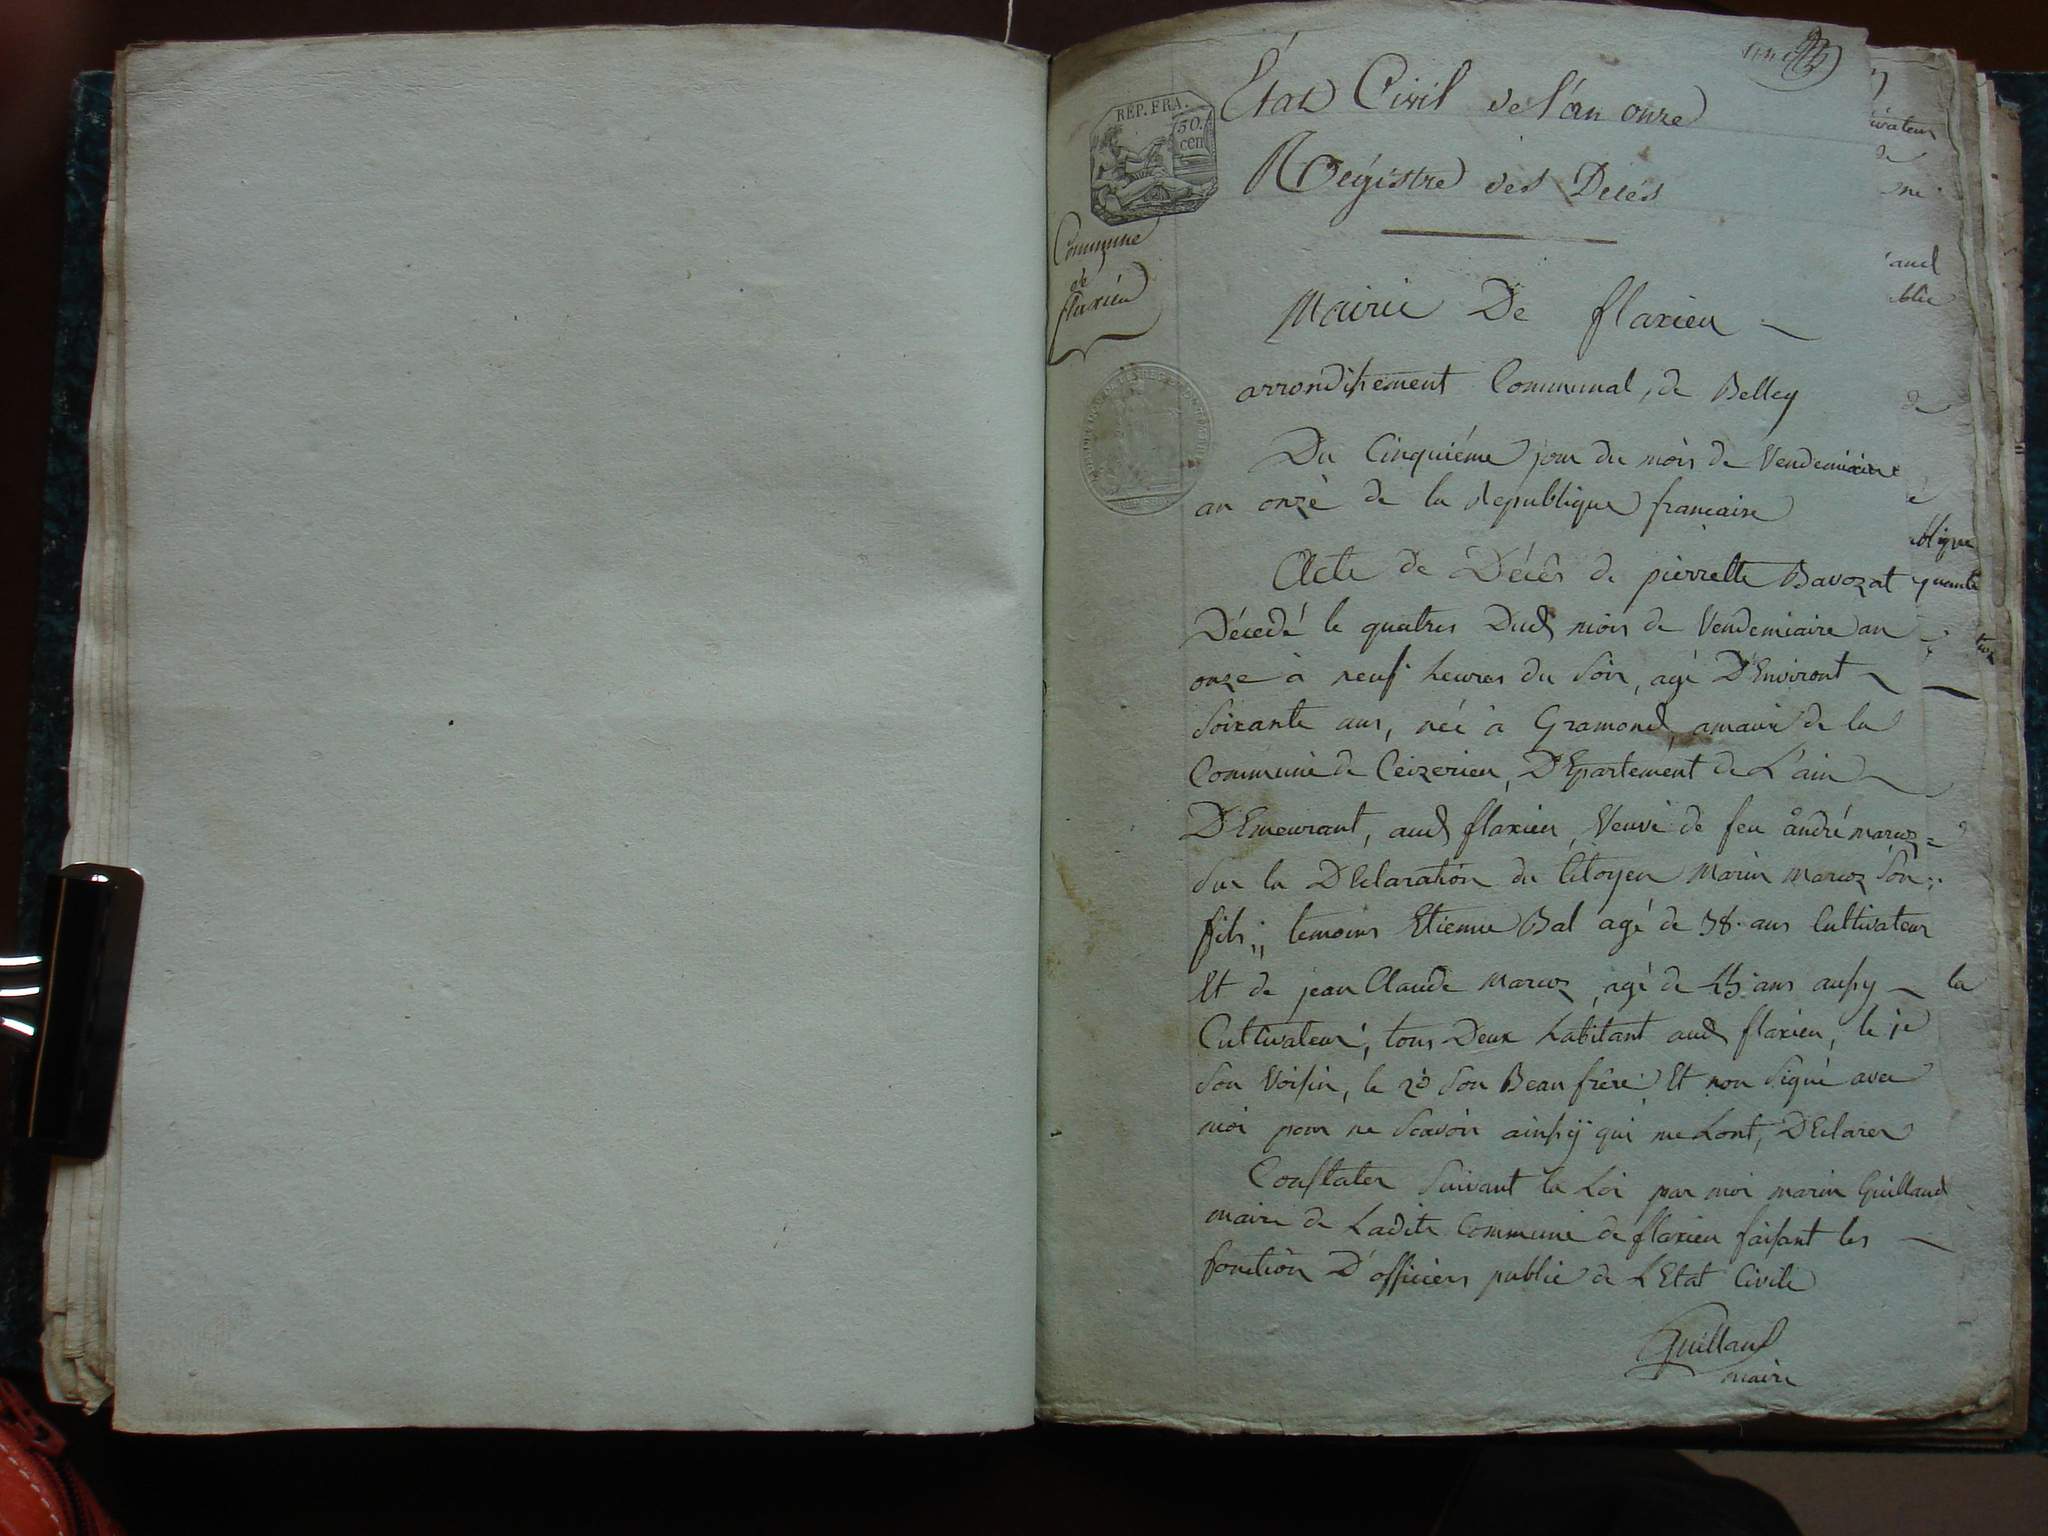 État Civil de l'an onze
REP. FRA.
50.
cen
Régistre des Décés
Commune
de
flaxieu
Mairie De flaxieu
arrondissement Communal, de Belley
Du Cinquiéme jour du mois de Vendemiaire
an onze de la Republique francaise
Acte de Décés de pierrette Bavozat
Décedé le quatres Dud mois de Vendemiaire an
onze à neuf heures du Soir, agé D'Environt
Soixante ans, née à Gramond, de la
Commune de Ceizerieu, D'Epartement de L'ain
D'Emeurant, aud flaxieu, Veuve de feu andré marcoz
Sur la DEclaration du Citoyen Marin marcoz Son
fils ;, temoins Etienne Bal agé de 38. ans Cultivateur
Et de jean Claude marcoz, agé de ans aussy
Cultivateur, tous Deux habitant aud flaxieu, le 1e
Son Voisin, le 2d Son Beau frére Et non Signé avec
moi pour ne Scavoir ainsÿ qui me Lont, DEclarer
Constater Suivant la Loi par moi marin Guilland
maire de Ladite Commune de flaxieu faisant les
fonction D'officiers public de LEtat Civile
Guilland
maire